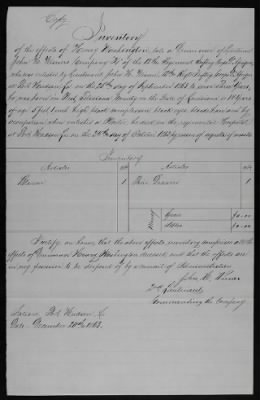 Copy
Inventory
of the effects of Henry Washington, late a Drummer of Captain
John H. Company "D" of the 12th Regiment
who was enlisted by Lieutenant John H.
at Port Hudson La on the 25th day of September 1863 to serve Three Years,
he was born in Parish in the State of Louisiana is 14 Years
of age 5 feet inches high, black complexion, black eyes, black hair and by
occupation when enlisted a he died in the regimental Hospital
at Port Hudson La on the 24th day of October 1863 by reason of
Inventory
Articles No Articles No
Blouse 1 Pair Drawers 1
Money
Specie $0.00
Notes $0.00
I certify, on honor, that the above
effects of Drummer Henry Washington deceased, and that the effects are
in my possession to be disposed of by a council of Administration
John H.
2nd Lieutenant
Commanding the Company
Station Port Hudson La
Date December 20th 1863.